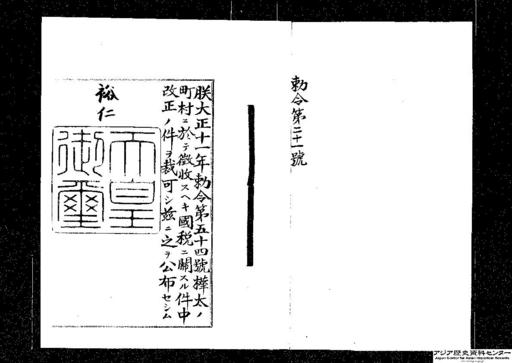 勅令第二十一號
朕大正十一年勅令第五十四號樺太ノ
町村ニ於テ徴收スヘキ國税ニ關スル件中
改正ノ件ヲ裁可シ茲ニ之ヲ公布セシム
裕仁
天皇
御璽
アジア歴史資料センター
Japan Center for Asian Historical Records